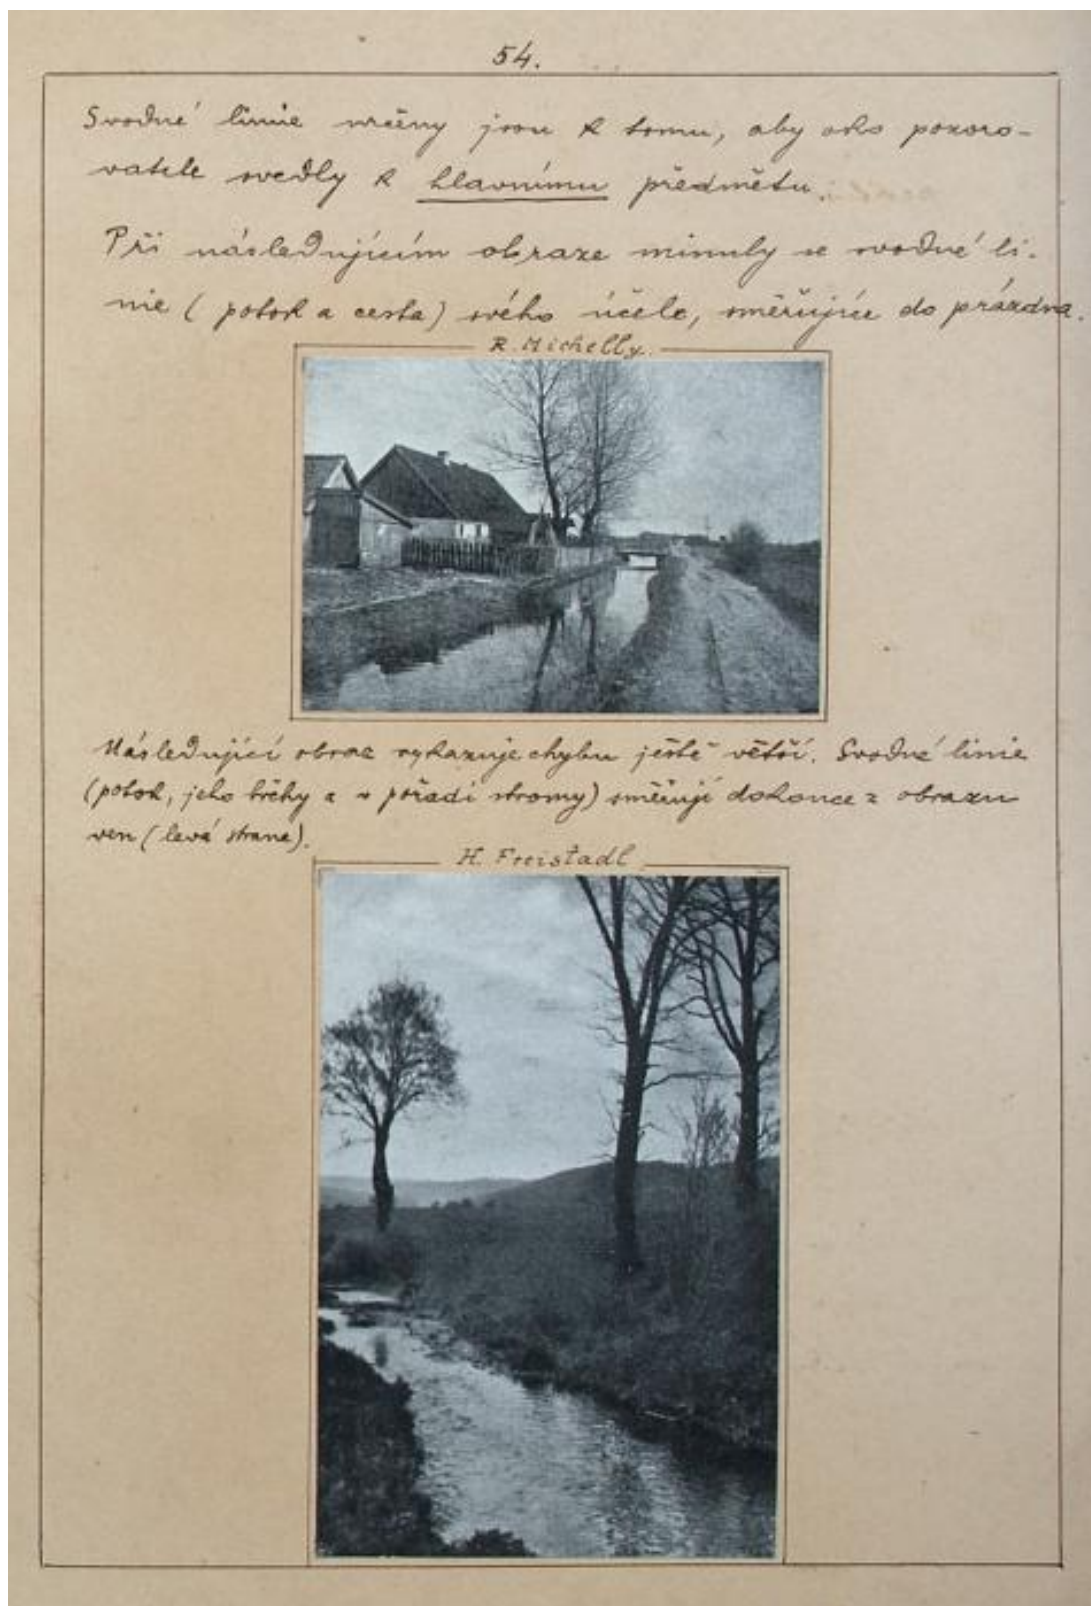 54.
Svodné linie určeny jsou k tomu, aby oko pozoro-
vatele svedly k hlavnímu předmětu.
Při následujícím obraze minuly se svodné li-
nie (potok a cesta) svého účele, směřujíce do prázdna.
R. Michelly.
Následující obraz vykazuje chybu ještě větší. Svodné linie
(potok, jeho břehy a v pořadí stromy) směřují dokonce z obrazu
ven (levá strana).
H. Freistadl